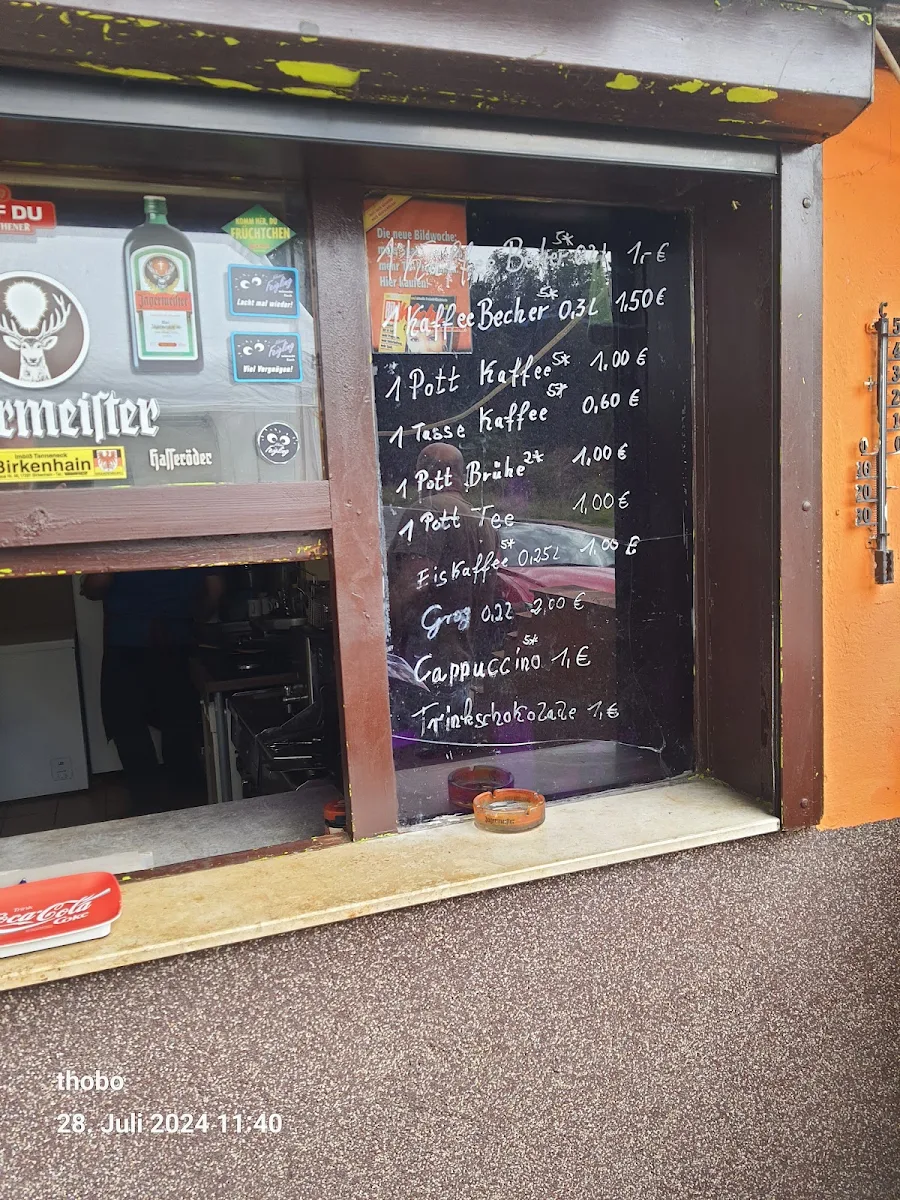 F DU
HENER
Jägermeister
KOMM HER, DU
FRÜCHTCHEN
Leckt mal wieder!
Viel Vergnügen!
rmeister
Imbiß Tanneneck
Birkenhain
Hasseröder
Die neue Bildwoche:
Hier kaufen!
Becher 5* 1,- €
1 Kaffee Becher 5* 0,3L 1,50 €
1 Pott Kaffee 5* 1,00 €
1 Tasse Kaffee 5* 0,60 €
1 Pott Brühe 2* 1,00 €
1 Pott Tee 1,00 €
Eiskaffee 5* 0,25L 1,00 €
Grog 0,2L 2,00 €
Cappuccino 5* 1,€
Trinkschokolade 1,€
Drink
Coca-Cola
Coke
thobo
28. Juli 2024 11:40